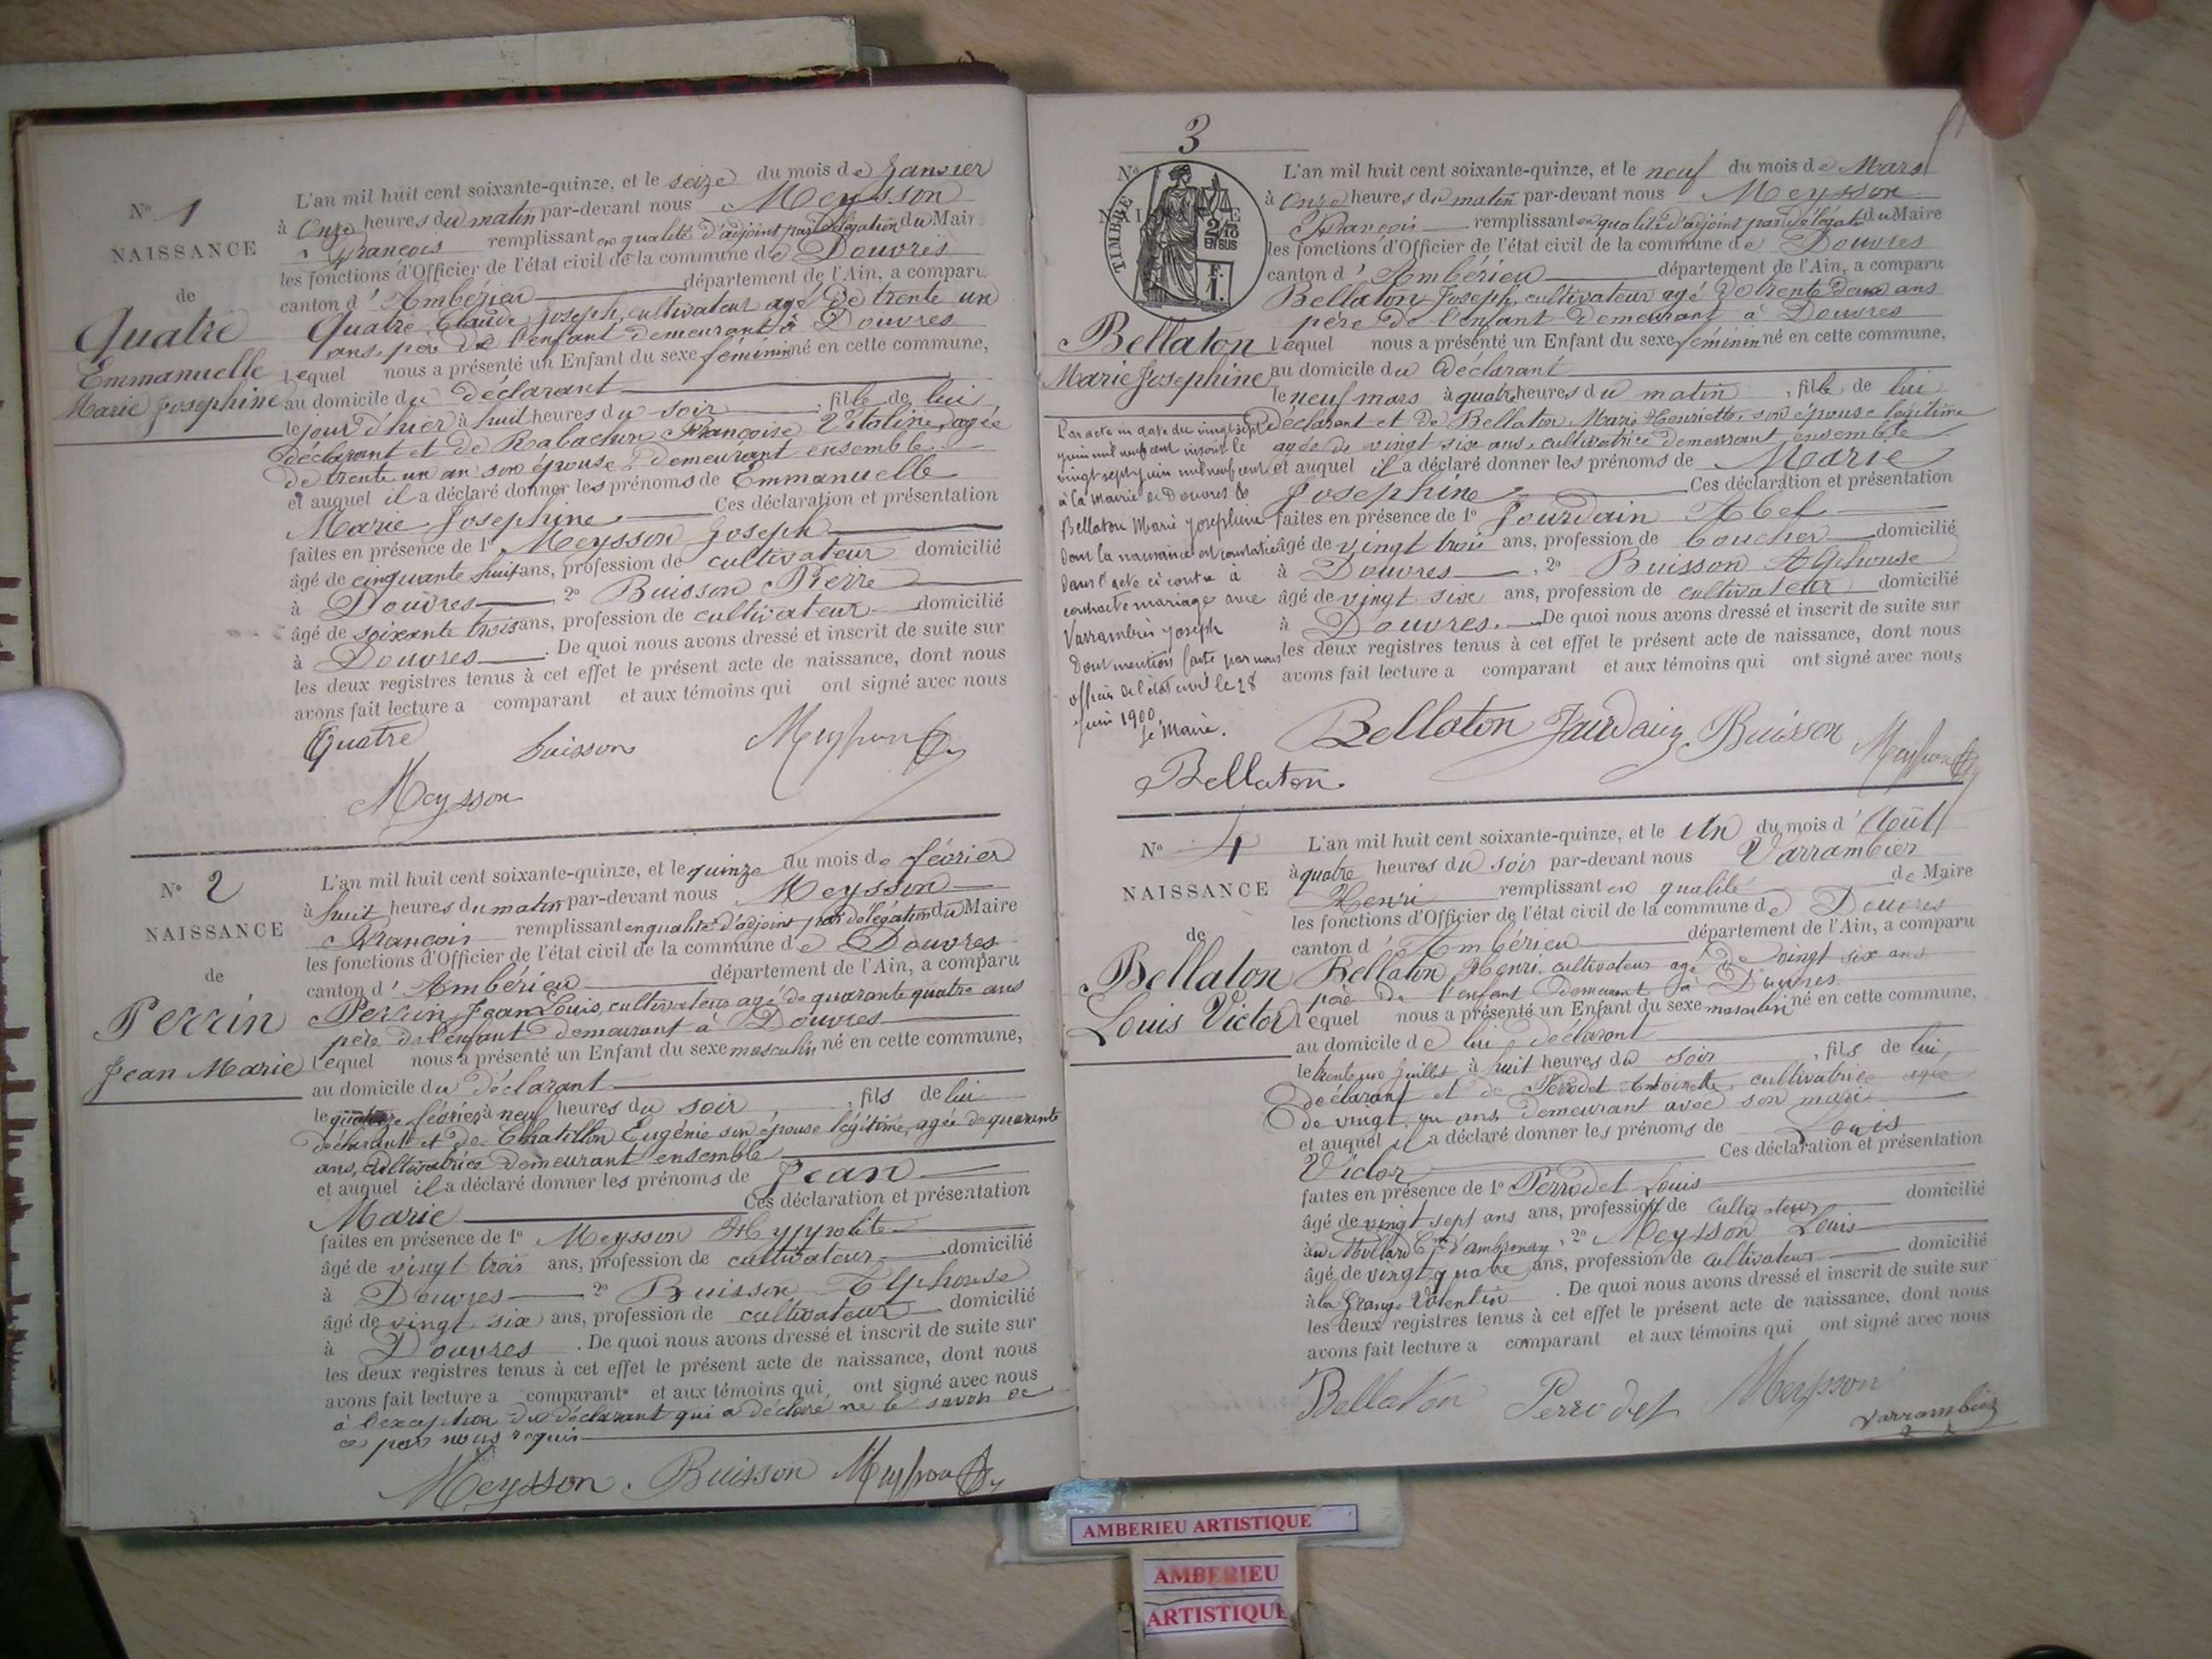 N° 1
NAISSANCE
de
Quatre
Emmanuelle
Marie Josephine
L'an mil huit cent soixante-quinze, et le seize du mois de Janvier
à Onze heures du matin par-devant nous Meysson
François remplissant en qualité d'adjoint par délégation du Maire
les fonctions d'Officier de l'état civil de la commune de Douvres
canton d' Ambérieu département de l'Ain, a comparu
Quatre Claude Joseph, cultivateur agé de trente un
ans, père de l'enfant demeurant à Douvres
lequel nous a présenté un Enfant du sexe féminin né en cette commune,
au domicile du déclarant
le jour d'hier à huit heures du soir, fille de lui
déclarant et de Rabachon Françoise Vitaline, agée
de trente un an son épouse, demeurant ensemble
et auquel il a déclaré donner les prénoms de Emmanuelle
Marie Josephine Ces déclaration et présentation
faites en présence de 1° Meysson Joseph
âgé de cinquante huit ans, profession de cultivateur domicilié
à Douvres, 2° Buisson Pierre
âgé de soixante trois ans, profession de cultivateur domicilié
à Douvres. De quoi nous avons dressé et inscrit de suite sur
les deux registres tenus à cet effet le présent acte de naissance, dont nous
avons fait lecture a comparant et aux témoins qui ont signé avec nous
Quatre buisson Meysson
Meysson
N° 2
NAISSANCE
de
Perrin
Jean Marie
L'an mil huit cent soixante-quinze, et le quinze du mois de février
à huit heures du matin par-devant nous Meysson
François remplissant en qualité d'adjoint par délégation du Maire
les fonctions d'Officier de l'état civil de la commune de Douvres
canton d' Ambérieu département de l'Ain, a comparu
Perrin, Jean Louis, cultivateur agé de quarante quatre ans
père de l'enfant demeurant à Douvres
lequel nous a présenté un Enfant du sexe masculin né en cette commune,
au domicile du déclarant
le quatorze février à neuf heures du soir, fils de lui
déclarant et de Chatillon Eugénie son épouse légitime, agée de quarante
ans, cultivatrice demeurant ensemble
et auquel il a déclaré donner les prénoms de Jean
Marie Ces déclaration et présentation
faites en présence de 1° Meysson Hyppolite
âgé de vingt trois ans, profession de cultivateur domicilié
à Douvres 2° Buisson Alphonse
âgé de vingt six ans, profession de cultivateur domicilié
à Douvres. De quoi nous avons dressé et inscrit de suite sur
les deux registres tenus à cet effet le présent acte de naissance, dont nous
avons fait lecture a comparant et aux témoins qui ont signé avec nous
à l'exception du déclarant qui a déclaré ne le savoir de
ce par nous requis
Meysson. Buisson Meysson
3
N°
TIMBRE
2/10
EN SUS
F.
1.
Bellaton
Marie Josephine
L'an mil huit cent soixante-quinze, et le neuf du mois de Mars
à Onze heures du matin par-devant nous Meysson
François remplissant en qualité d'adjoint par délégaton du Maire
les fonctions d'Officier de l'état civil de la commune de Douvres
canton d' Ambérieu département de l'Ain, a comparu
Bellaton Joseph, cultivateur agé de trente deux ans
père de l'enfant demeurant à Douvres
lequel nous a présenté un Enfant du sexe féminin né en cette commune,
au domicile du déclarant
le neuf mars à quatre heures du matin, fille de lui
déclarant et de Bellaton Marie Henriette, son épouse légitime
agée de vingt six ans, cultivatrice demeurant ensemble
et auquel il a déclaré donner les prénoms de Marie
Josephine Ces déclaration et présentation
faites en présence de 1° Jourdain Abel
âgé de vingt trois ans, profession de boucher domicilié
à Douvres, 2° Buisson Alphonse
âgé de vingt six ans, profession de cultivateur domicilié
à Douvres. De quoi nous avons dressé et inscrit de suite sur
les deux registres tenus à cet effet le présent acte de naissance, dont nous
avons fait lecture a comparant et aux témoins qui ont signé avec nous
Par acte en date du vingt sept
juin mil neuf cent inscrit le
vingt sept juin mil neuf cent
à la mairie de Douvres
Bellaton Marie Josephine
dont la naissance est constatée
dans l'acte ci contre à
contracté mariage avec
Varrambier Joseph
Dont mention faite par nous
officier de l'état civil le 28
Juin 1900.
Le Maire.
Bellaton
Bellaton Jourdain Buisson Meysson
N° 4
NAISSANCE
de
Bellaton
Louis Victor
L'an mil huit cent soixante-quinze, et le Un du mois d' Août
à quatre heures du soir par-devant nous Varrambier
Henri remplissant en qualité de Maire
les fonctions d'Officier de l'état civil de la commune de Douvres
canton d' Ambérieu département de l'Ain, a comparu
Bellaton Henri, cultivateur agé de vingt six ans
père de l'enfant demeurant à Douvres
lequel nous a présenté un Enfant du sexe masculin né en cette commune,
au domicile de lui déclarant
le trente un Juillet à huit heures du soir, fils de lui,
déclarant et de Perrodet Antoinette, cultivatrice agée
de vingt un ans, demeurant avec son mari
et auquel il a déclaré donner les prénoms de Louis
Victor Ces déclaration et présentation
faites en présence de 1° Perrodet Louis
âgé de vingt sept ans ans, profession de cultivateur domicilié
au Mollard Cne d'ambronay, 2° Meysson Louis
âgé de vingt quatre ans, profession de cultivateur domicilié
à la Grange Valentin. De quoi nous avons dressé et inscrit de suite sur
les deux registres tenus à cet effet le présent acte de naissance, dont nous
avons fait lecture a comparant et aux témoins qui ont signé avec nous
Bellaton Perrodet Meysson Varrambier
AMBERIEU ARTISTIQUE
AMBERIEU
ARTISTIQUE